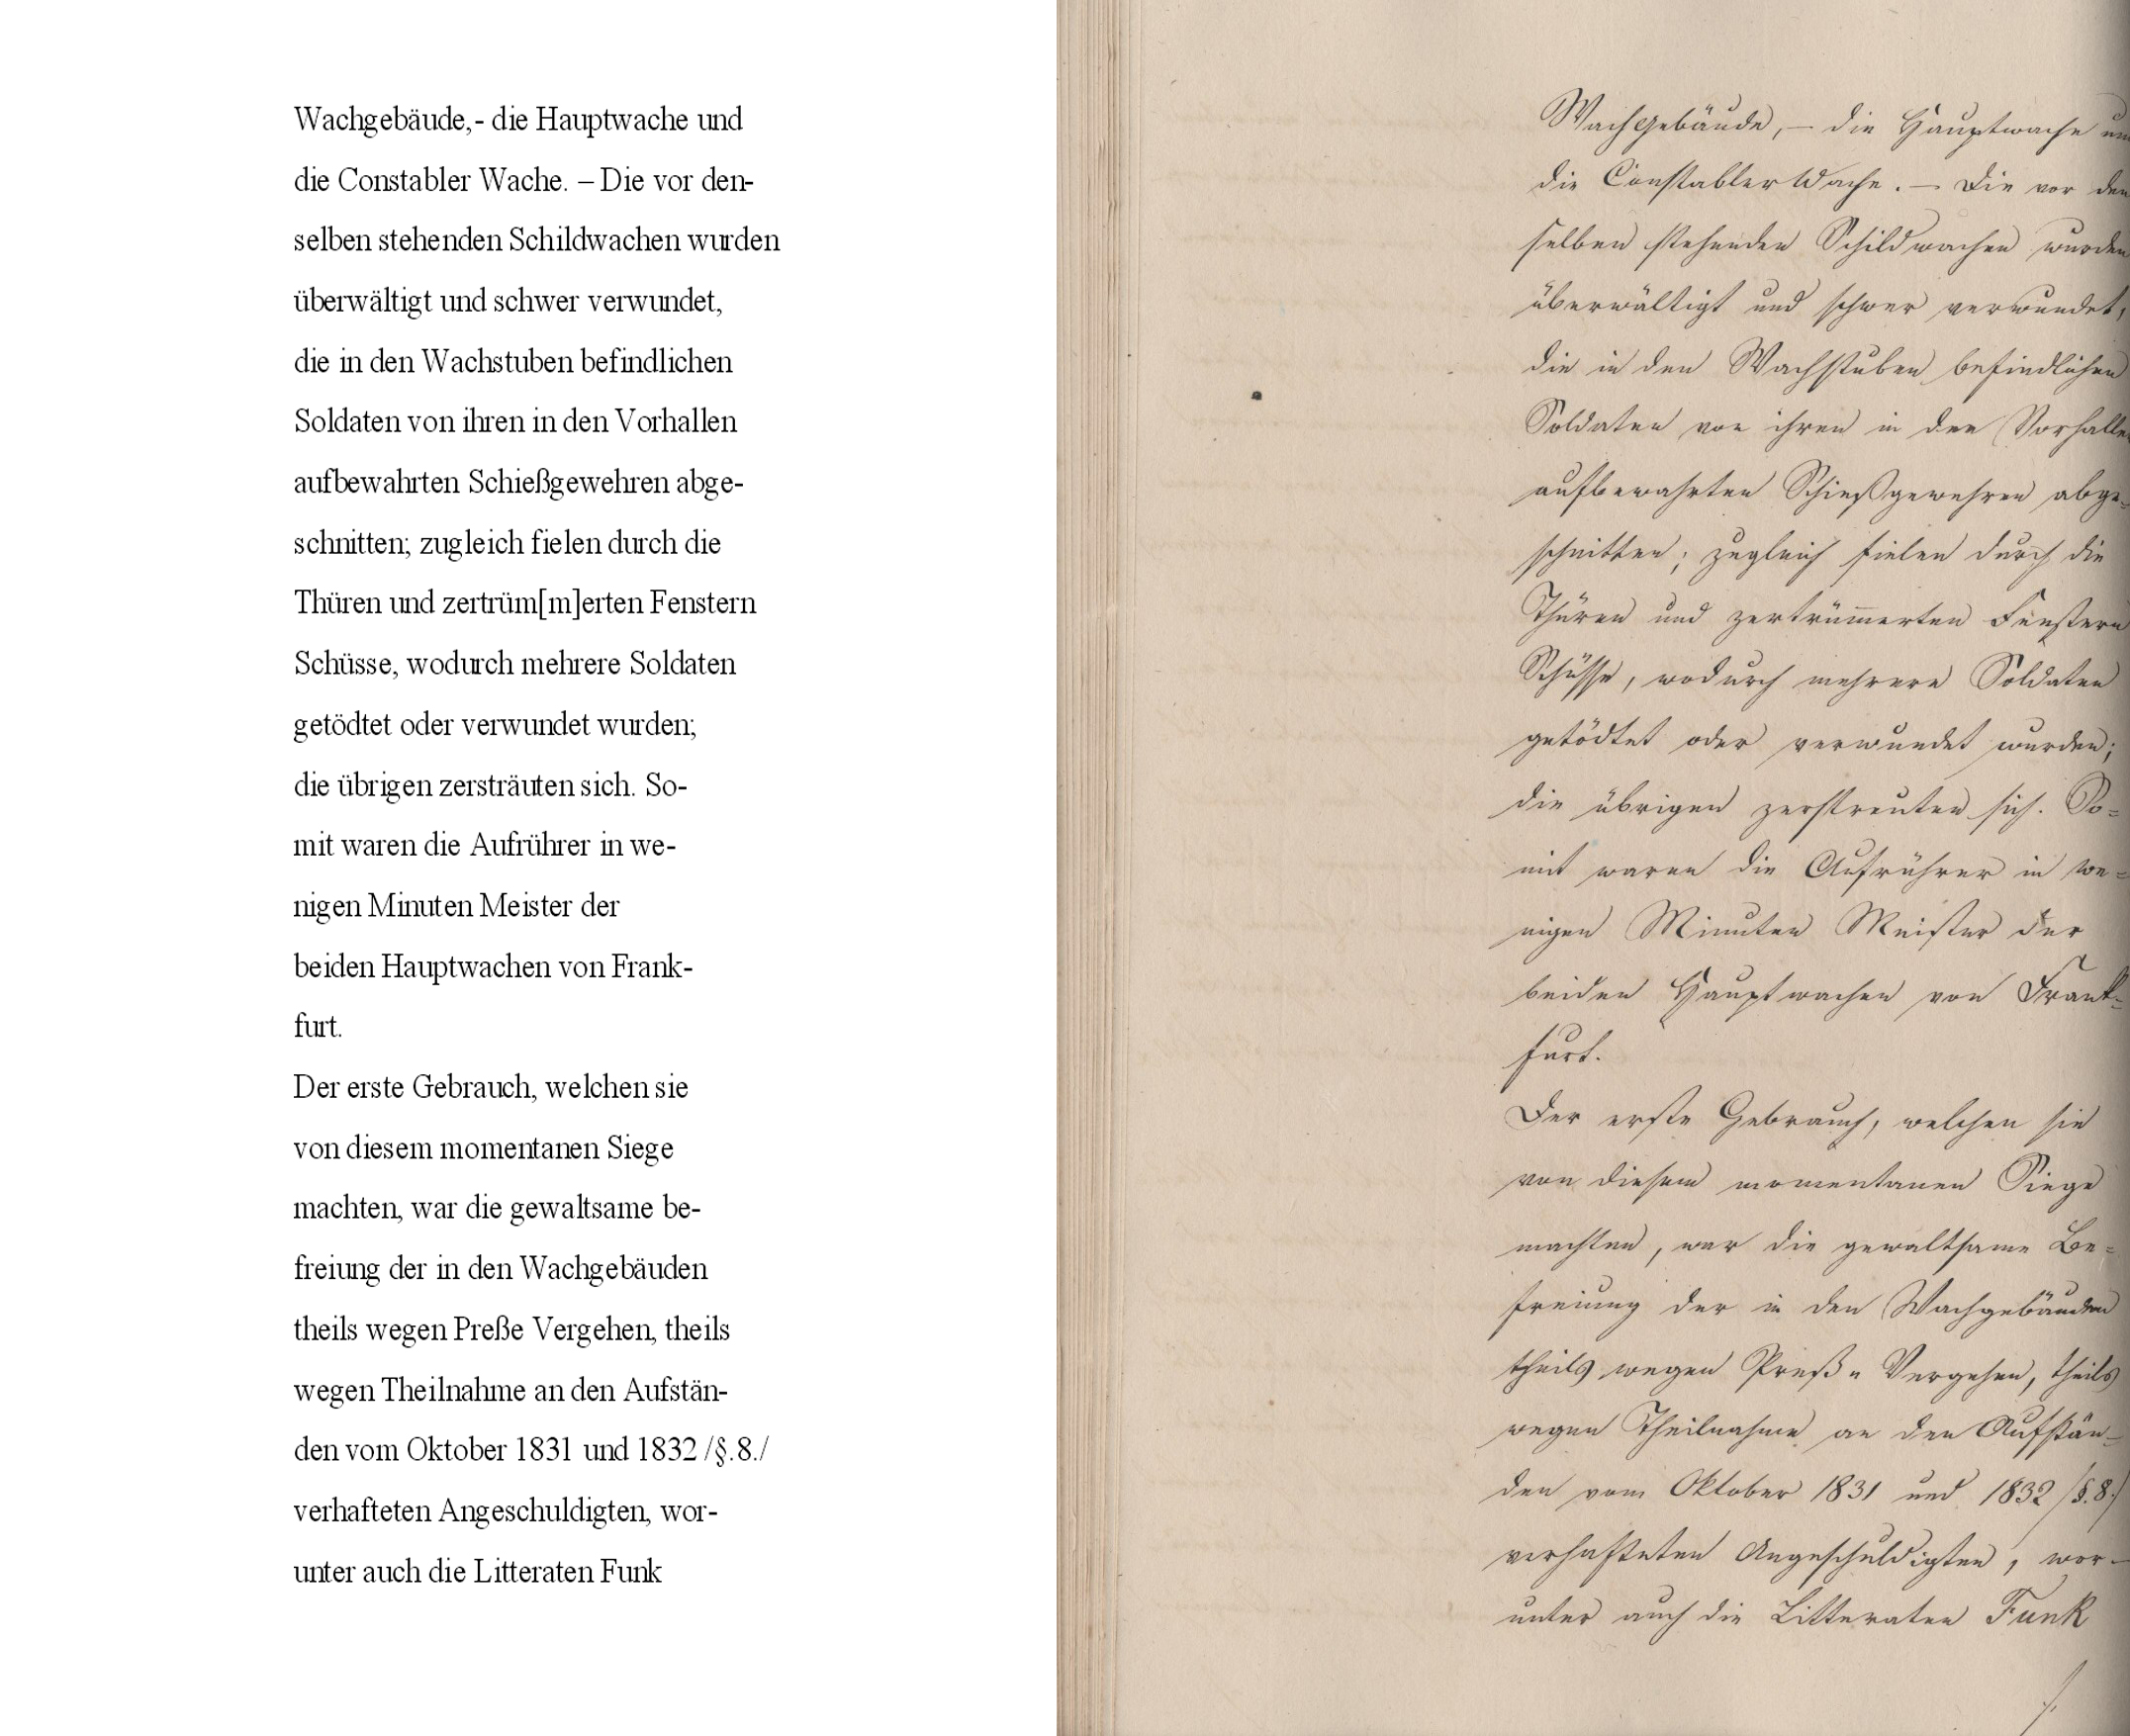 Wachgebäude,- die Hauptwache und
die Constabler Wache. – Die vor den-
selben stehenden Schildwachen wurden
überwältigt und schwer verwundet,
die in den Wachstuben befindlichen
Soldaten von ihren in den Vorhallen
aufbewahrten Schießgewehren abge-
schnitten; zugleich fielen durch die
Thüren und zertrüm[m]erten Fenstern
Schüsse, wodurch mehrere Soldaten
getödtet oder verwundet wurden;
die übrigen zersträuten sich. So-
mit waren die Aufrührer in we-
nigen Minuten Meister der
beiden Hauptwachen von Frank-
furt.
Der erste Gebrauch, welchen sie
von diesem momentanen Siege
machten, war die gewaltsame be-
freiung der in den Wachgebäuden
theils wegen Preße Vergehen, theils
wegen Theilnahme an den Aufstän-
den vom Oktober 1831 und 1832 /§.8./
verhafteten Angeschuldigten, wor-
unter auch die Litteraten Funk
Wachgebäude, – die Hauptwache un
die Constabler Wache. – Die vor den
selben stehenden Schildwachen wurden
überwältigt und schwer verwundet,
die in den Wachstuben befindlichen
Soldaten von ihren in den Vorhalle
aufbewahrten Schießgewehren abge-
schnitten; zugleich fielen durch die
Thüren und zertrüm̅erten Fenstern
Schüsse, wodurch mehrere Soldaten
getödtet oder verwundet wurden;
die übrigen zerstreuten sich. So=
mit waren die Aufrührer in we=
nigen Minuten Meister der
beiden Hauptwachen von Frank=
furt.
Der erste Gebrauch, welchen sie
von diesem momentanen Siege
machten, war die gewaltsame Be=
freiung der in den Wachgebäuden
theils wegen Preß= Vergehen, theils
wegen Theilnahme an den Aufstän=
den vom Oktober 1831 und 1832 /§.8./
verhafteten Angeschuldigten, wor-
unter auch die Litteraten Funk